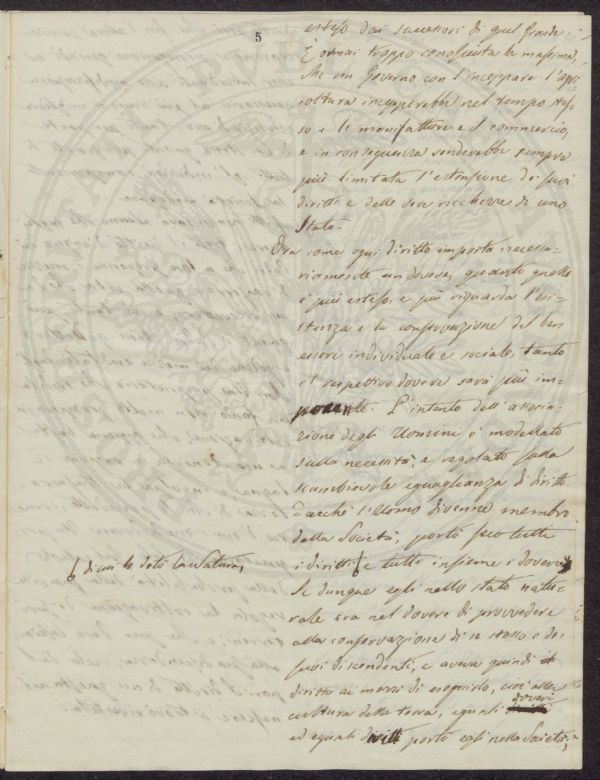 5
esteso dai successori di quel Grande.
È ormai troppo conosciuta la massima,
che un Governo con l'inceppare l'agri
coltura inceperebbe nel tempo stes-
so e le manifatture e il commercio,
e in conseguenza renderebbe sempre
più limitata l'estensione de' suoi
diritti e delle ricchezze di uno
Stato.
Ora come ogni diritto importa necessa-
riamente un dovere, quanto quello
è più esteso, e più riguarda l'esi-
stenza e la conservazione del ben
essere individuale e sociale, tanto
il rispettivo dovere sarà più im-
ponente. L'intento dell'associa-
zione degli Uomini è modellato
sulla necessità, e regolato sulla
scambievole eguaglianza di diritti.
Dacché l'Uomo divenne membro
della Società, portò seco tutti
i diritti e tutti insieme i doveri
di cui lo dotò la Natura,
Se dunque egli nello stato natu-
rale era nel dovere di provvedere
alla conservazione di se stesso e dei
suoi discendenti, e aveva quindi
diritto ai mezzi di eseguirlo, cioè alla
doveri
cultura della terra, eguali
ed eguali diritti portò egli nella Società,